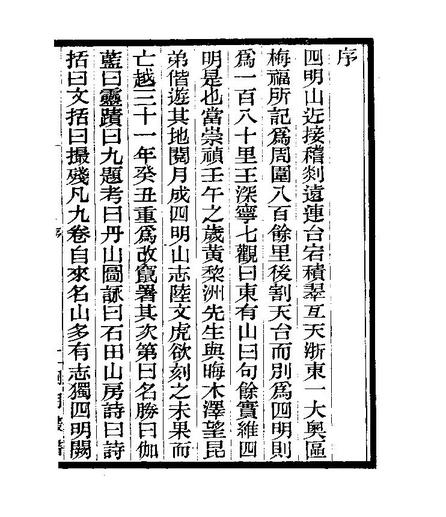 序
四明山近接稽剡遠連台宕積翠亙天浙東一大奧區
梅福所記爲周圍八百餘里後割天台而別爲四明則
爲一百八十里王深寧七觀曰東有山曰句餘實維四
明是也當崇禎壬午之歲黃棃洲先生與晦木澤望昆
弟偕遊其地閱月成四明山志陸文虎欲刻之未果而
亡越三十一年癸丑重爲改竄署其次第曰名勝曰伽
藍曰靈蹟曰九題考曰丹山圖詠曰石田山房詩曰詩
括曰文括曰撮殘凡九卷自來名山多有志獨四明闕